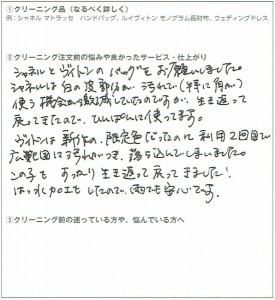 ①クリーニング品(なるべく詳しく)
例:シャネル マトラッセ ハンドバッグ、ルイヴィトン モノグラム長財布、ウェディングドレス
②クリーニング注文前の悩みや良かったサービス・仕上がり
シャネルとヴィトンのバッグをお願いしました。
シャネルは白の皮部分が汚れて(特に角が)
使う機会が激減していたのですが、生き返って
戻ってきたので、ひんぱんに使ってます。
ヴィトンは新作の、限定色だったのに利用2回目で
広範囲に汚れがつき、落ち込んでしまいました。
この子もすっかり生き返って戻ってきました!
はっ水加工もしたので、雨でも安心です。
③クリーニング前の迷っている方や、悩んでいる方へ